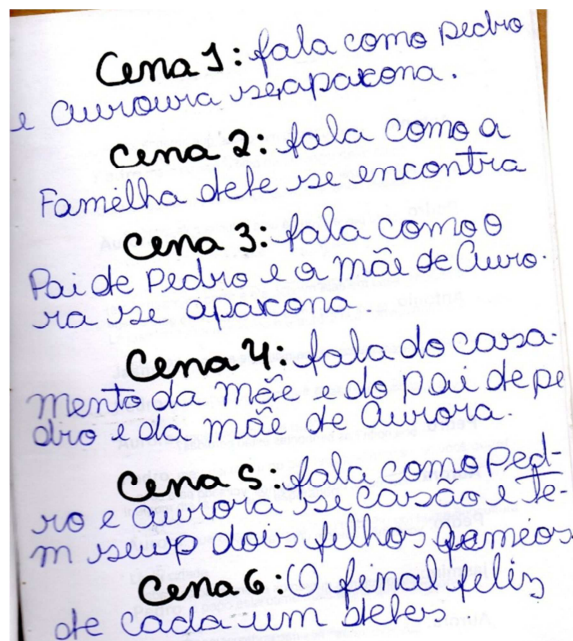 Cena 1: fala como Pedro
e Auroura se apaxona.
Cena 2: fala como a
Famělha dele se encontra
Cena 3: fala como o
Pai de Pedro e a mãe de Auro-
ra se apaxona.
Cena 4: fala do casa-
mento da mãe e do pai de pe
dro e da mãe de Aurora.
Cena 5: fala como Ped-
ro e Aurora se casão e te-
m seus dois filhos gemeos
Cena 6: O final feliz
de cada um deles.